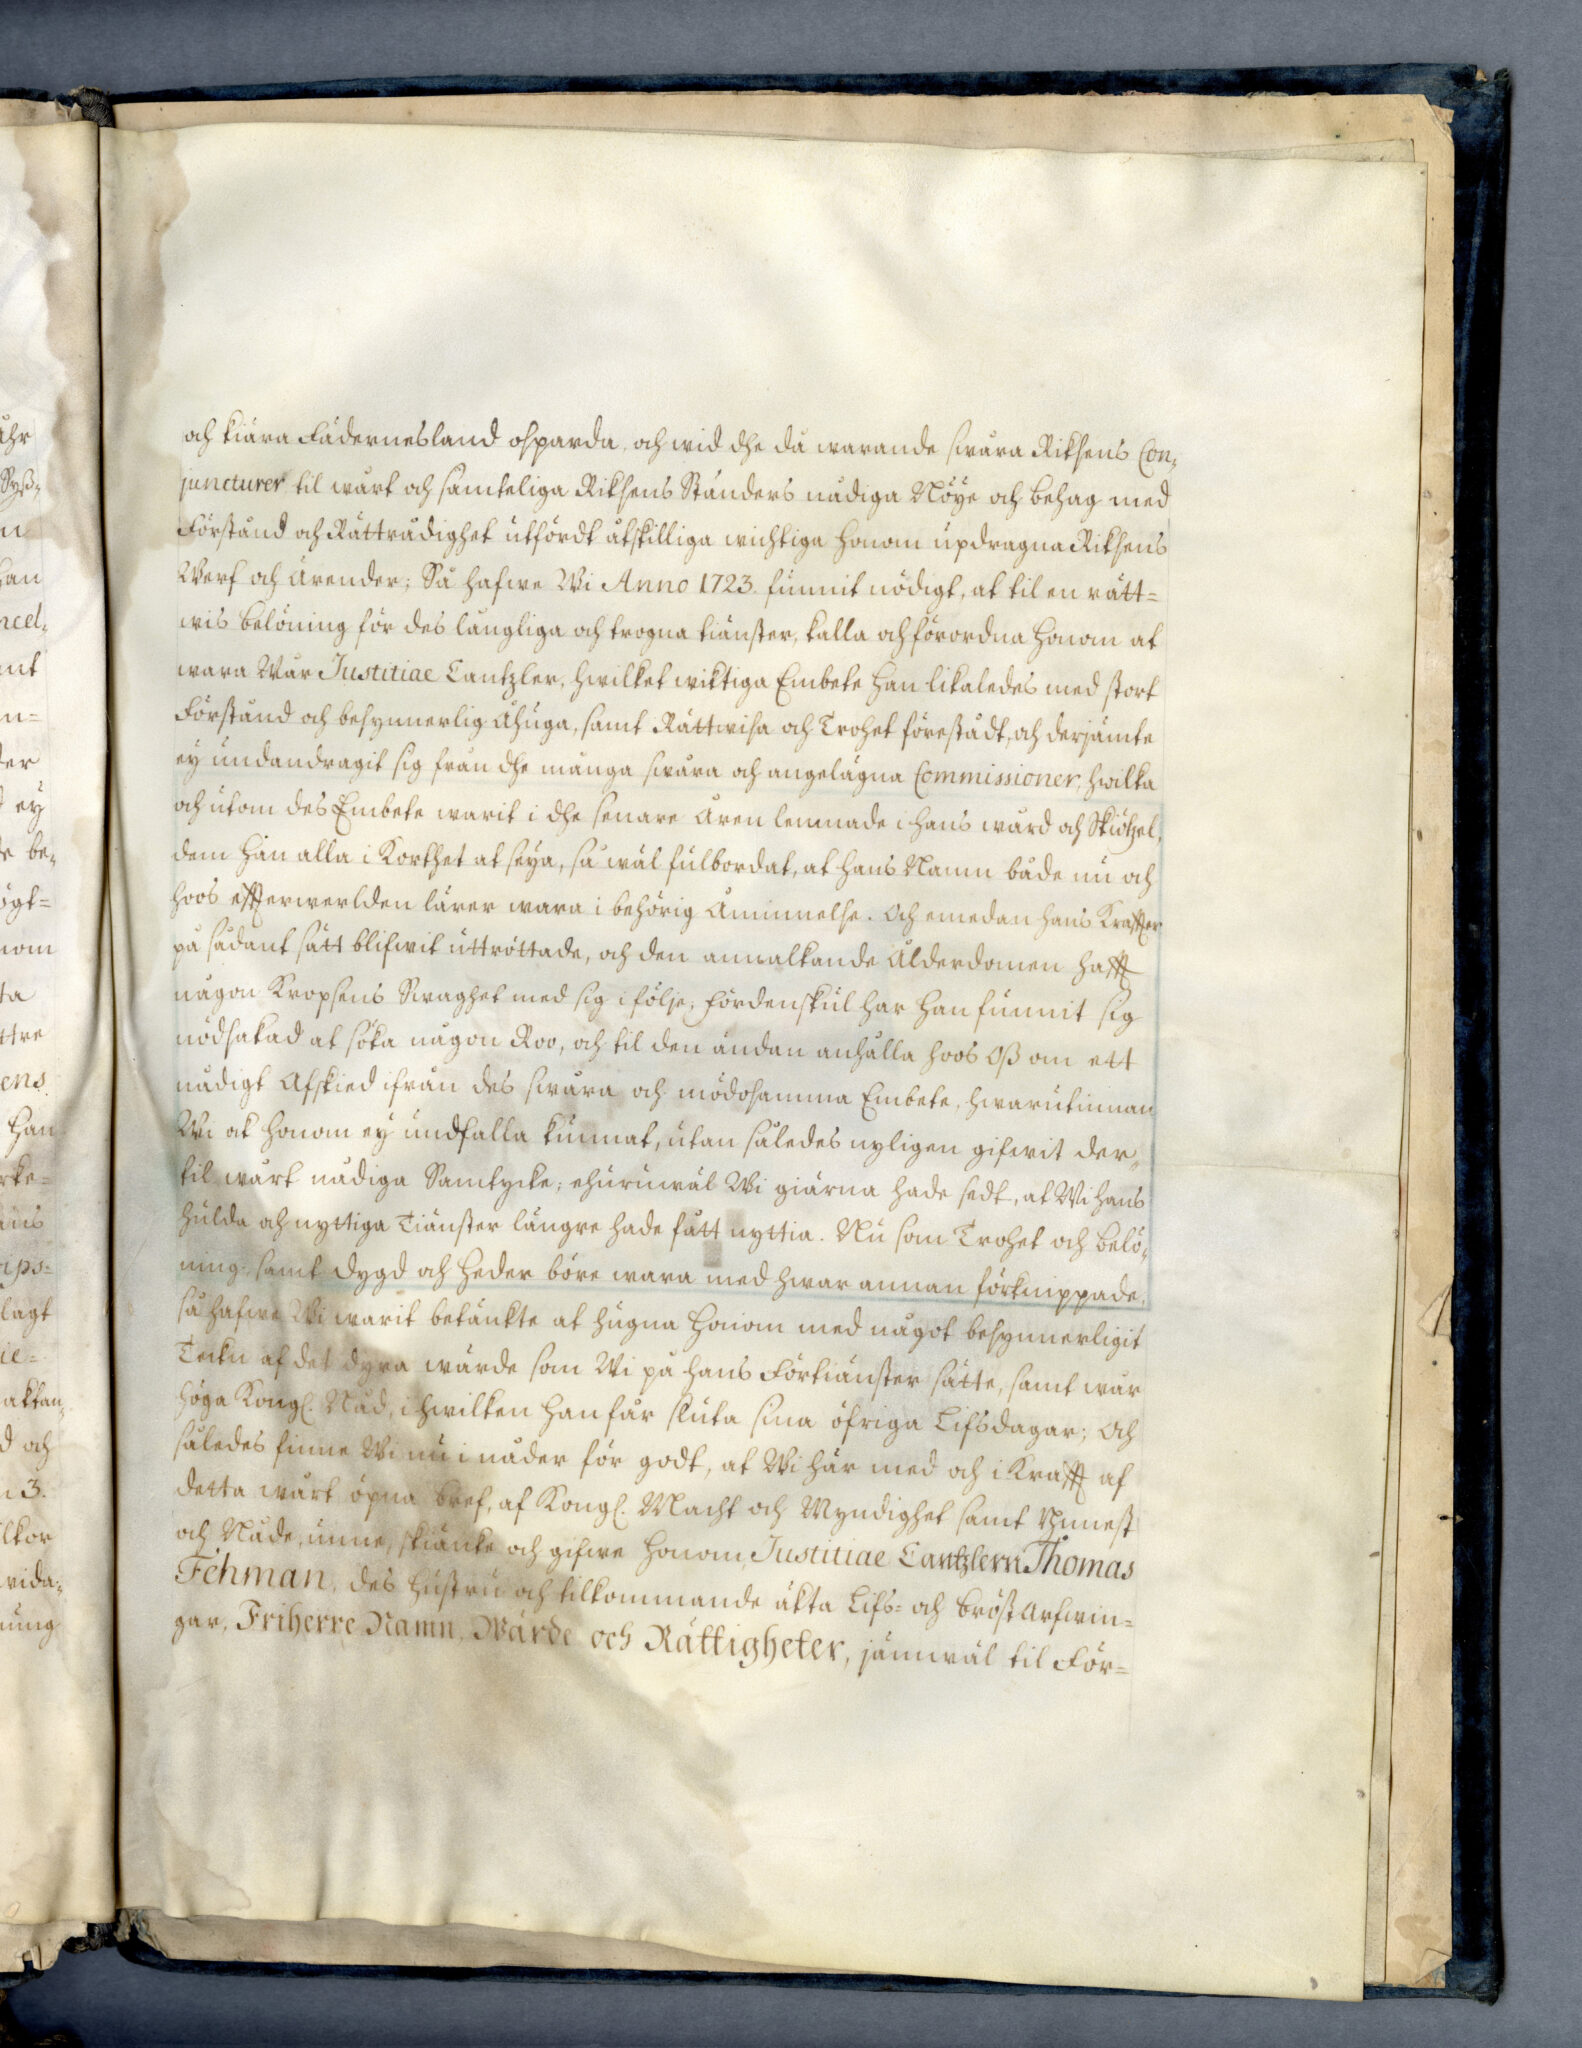 och kiära Fädernesland osparda, och wid dhe då warande swåra Riksens Con-
juncturer til wårt och samteliga Riksens Ständers nådiga Nöye och behag med
Förstånd och Rättrådighet utfördt åtskilliga wichtiga honom updragna Riksens
Werf och Ärender; Så hafwe Wi Anno 1723. funnit nödigt, at til en rätt=
wis belöning för des långliga och trogna tiänster, kalla och förordna honom at
wara Wår Justitiae Cantzler, hwilket wiktiga Embete han likaledes med stort
Förstånd och besynnerlig Åhuga, samt Rättwisa och Trohet förestådt, och derjämte
ey undandragit sig från dhe många swåra och angelägna Commissioner, hwilka
och utom des Embete warit i dhe senare Åren lemnade i hans wård och Skiötzel,
dem han alla i Korthet at seya, så wäl fulbordat, at hans Namn både nu och
hoos effterwerlden lärer wara i behörig Åminnelse. Och emedan hans Kraffter
på sådant sätt blifwit uttröttade, och den annalkande Ålderdomen hafft
någon Kropsens Swaghet med sig i följe; fördenskul har han funnit sig
nödsakad at söka någon Roo, och til den ändan anhålla hoos Oß om ett
nådigt Afskied ifrån des swåra och mödosamma Embete, hwarutinnan
Wi ok honom ey undfalla kunnat, utan således nyligen gifwit der-
til wårt nådiga Samtycke; ehuruwäl Wi giärna hade sedt, at Wi hans
hulda och nyttiga Tiänster längre hade fått nyttia. Nu som Trohet och belö-
ning samt dygd och heder böre wara med hwar annan förknippade,
så hafwe Wi warit betänkte at hugna honom med något besynnerligit
Teckn af det dyra wärde som Wi på hans Förtiänster sätte, samt wår
höga Kongl. Nåd, i hwilken han får sluta sina öfriga Lifsdagar; Och
således finne Wi nu i nåder för godt, at Wi här med och i Krafft af
detta wårt öpna bref, af Kongl. Macht och Myndighet samt Ynnest
och Nåde, unne, skiänke och gifwe honom Justitiae Cantzlern Thomas
Fehman, des hustru och tilkommande äkta Lifs= och bröst Arfwin=
gar, Friherre Namn, Wärde och Rättigheter, jämwäl til För=